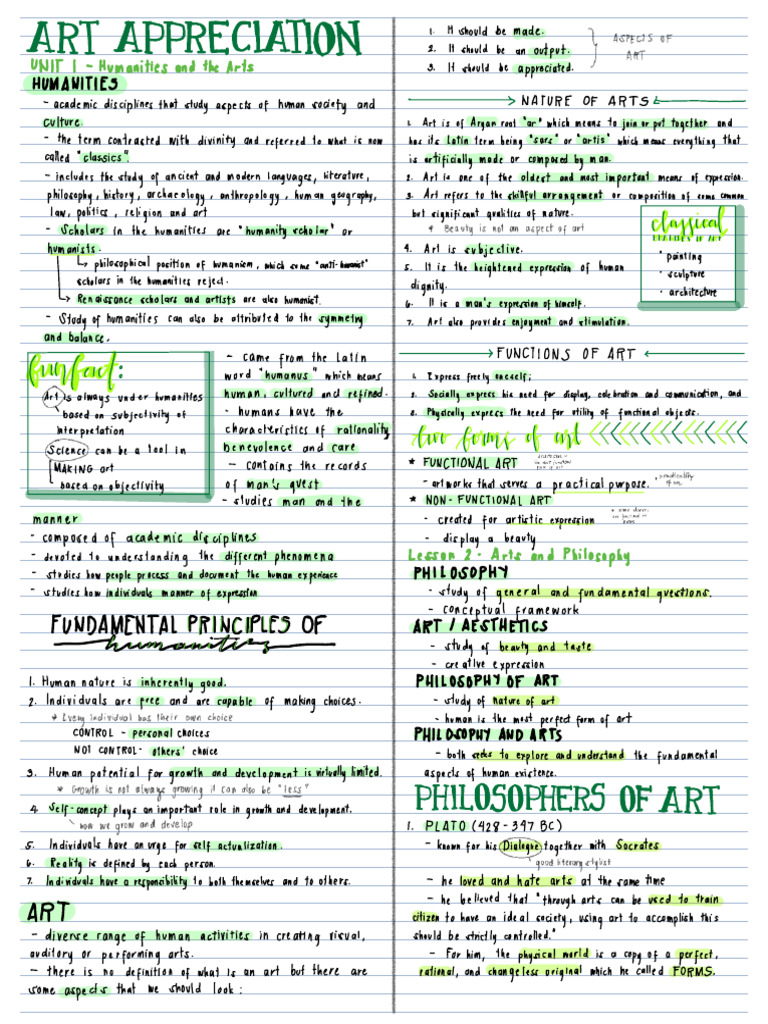 ART APPRECIATION
UNIT 1 - Humanities and the Arts
HUMANITIES
- academic disciplines that study aspects of human society and
culture
- the term contracted with divinity and referred to what is now
called "classics".
- includes the study of ancient and modern languages, literature,
philosophy, history, archaeology, anthropology, human geography,
law, politics, religion and art
- Scholars in the humanities are "humanity scholar" or
humanists.
philosophical position of humanism, which some "anti-humanist"
scholars in the humanities reject.
Renaissance scholars and artists are also humanist.
- Study of humanities can also be attributed to the symmetry
and balance.
fun fact:
Art is always under humanities
based on subjectivity of
interpretation
Science can be a tool in
MAKING art
based on objectivity
- came from the Latin
word "humanus" which means
human, cultured and refined.
- humans have the
characteristics of rationality,
benevolence and care
- contains the records
of man's quest
- studies man and the
manner
- composed of academic disciplines
- devoted to understanding the different phenomena
- studies how people process and document the human experience
- studies how individuals manner of expression
FUNDAMENTAL PRINCIPLES OF
humanities
1. Human nature is inherently good.
2. Individuals are free and are capable of making choices.
* Every individual has their own choice
CONTROL - personal choices
NOT CONTROL - others' choice
3. Human potential for growth and development is virtually limited.
* Growth is not always growing it can also be "less"
4 Self-concept plays an important role in growth and development.
how we grow and develop
5. Individuals have an urge for self actualization.
6. Reality is defined by each person.
7. Individuals have a responsibility to both themselves and to others.
ART
- diverse range of human activities in creating visual,
auditory or performing arts.
- there is no definition of what is an art but there are
some aspects that we should look:
1. It should be made.
2. It should be an output.
3. It should be appreciated.
ASPECTS OF
ART
NATURE OF ARTS
1. Art is of Aryan root "ar" which means to join or put together and
has its Latin term being "sars" or "artis" which means everything that
is artificially made or composed by man.
2. Art is one of the oldest and most important means of expression.
3. Art refers to the skillful arrangement or composition of some common
but significant qualities of nature.
* Beauty is not an aspect of art
4. Art is subjective.
5. It is the heightened expression of human
dignity.
6. It is a man's expression of himself.
7. Art also provides enjoyment and stimulation.
classical
• painting
• sculpture
• architecture
FUNCTIONS OF ART
1. Express freely oneself;
2. Socially express his need for display, celebration and communication, and
3. Physically express the need for utility of functional objects.
two forms of art
* FUNCTIONAL ART
- artworks that serves a practical purpose.
* NON-FUNCTIONAL ART
- created for artistic expression
- display a beauty
Lesson 2 - Arts and Philosophy
PHILOSOPHY
- study of general and fundamental questions.
- conceptual framework
ART / AESTHETICS
- study of beauty and taste
- creative expression
PHILOSOPHY OF ART
- study of nature of art
- human is the most perfect form of art
PHILOSOPHY AND ARTS
- both seeks to explore and understand the fundamental
aspects of human existence.
PHILOSOPHERS OF ART
1. PLATO (428-347 BC)
- known for his Dialogue together with Socrates
good literary stylist
- he loved and hate arts at the same time
- he believed that "through arts can be used to train
citizen to have an ideal society, using art to accomplish this
should be strictly controlled."
- For him, the physical world is a copy of a perfect,
rational, and changeless original which he called FORMS.